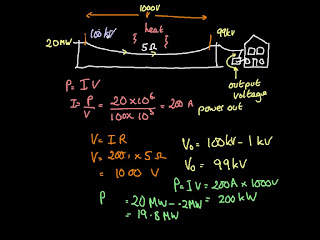 1000V
100kV heat 99kV
20MW 5Ω
output
voltage
power out
P = IV
I = P/V = 20x10⁶/100x10³ = 200A
V = IR
V = 200 x 5Ω
= 1000 V
V₀ = 100kV - 1kV
V₀ = 99kV
P = IV = 200A x 1000V
= 200kW
P = 20MW - .2MW
= 19.8MW